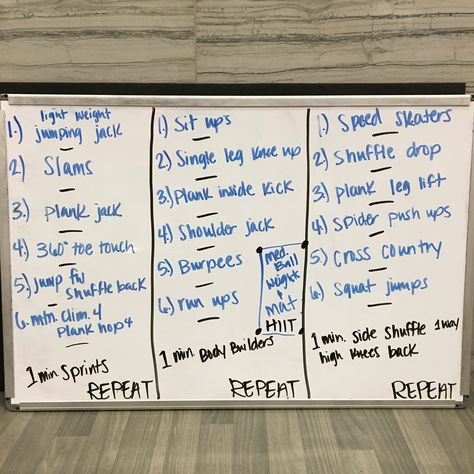 light weight
1.) jumping jack
2) Slams
3.) plank jack
4.) 360° toe touch
5.) jump fw
shuffle back
6. mtn. clim. 4
plank hop 4
1 min. Sprints
REPEAT
1.) Sit ups
2.) Single leg knee up
3.) Plank inside kick
4.) Shoulder jack
5.) Burpees
6.) run ups
med.
Ball
weight
+
mat
HIIT
1 min. Body Builders
REPEAT
1.) Speed skaters
2) shuffle drop
3.) plank leg lift
4.) Spider push ups
5.) Cross country
6.) Squat jumps
1 min. side shuffle 1 way
high knees back
REPEAT